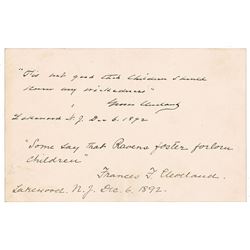 "'Tis not good that children should
know any wickedness"
Grover Cleveland
Lakewood N.J. Dec 6. 1892
"Some say that Ravens foster forlorn
children"
Frances F. Cleveland.
Lakewood. N.J. Dec. 6. 1892.